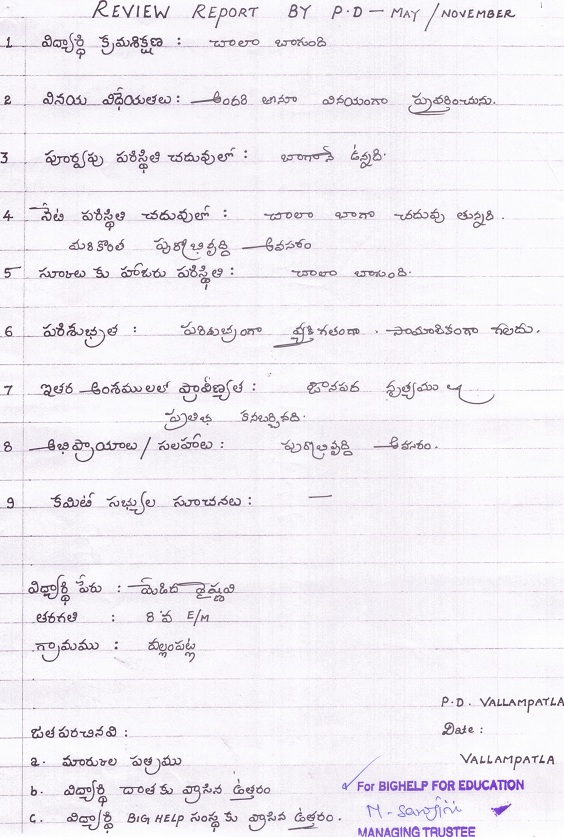 REVIEW REPORT BY P.D - MAY / NOVEMBER
1 విద్యార్థి క్రమశిక్షణ : చాలా బాగుంది
2 వినయ విధేయతలు : అందరి వినయంగా ప్రవర్తించును.
3 పూర్వపు పరిస్థితి చదువులో : బాగానే ఉన్నది.
4 నేటి పరిస్థితి చదువులో : చాలా బాగా చదువు తున్నది.
మరికొంత పురోభివృద్ధి అవసరం
5 స్కూలు కు హాజరు పరిస్థితి : చాలా బాగుంది.
6 పరిశుభ్రత : పరిశుభ్రంగా వ్యక్తిగతంగా . సామాజికంగా గలదు.
7 ఇతర అంశములలో ప్రావీణ్యత : జానపద నృత్యము లో
ప్రతిభ కనబర్చినది.
8 అభిప్రాయాలు / సలహాలు : పురోభివృద్ధి అవసరం.
9 కమిటీ సభ్యుల సూచనలు : —
విద్యార్థి పేరు :
తరగతి : 8 వ E/M
గ్రామము : వల్లంపట్ల
P.D. VALLAMPATLA
జతపరచినవి :
Date :
a. మార్కుల పత్రము
VALLAMPATLA
b. విద్యార్థి దాతకు వ్రాసిన ఉత్తరం
For BIGHELP FOR EDUCATION
c. విద్యార్థి BIG HELP సంస్థ కు వ్రాసిన ఉత్తరం.
MANAGING TRUSTEE